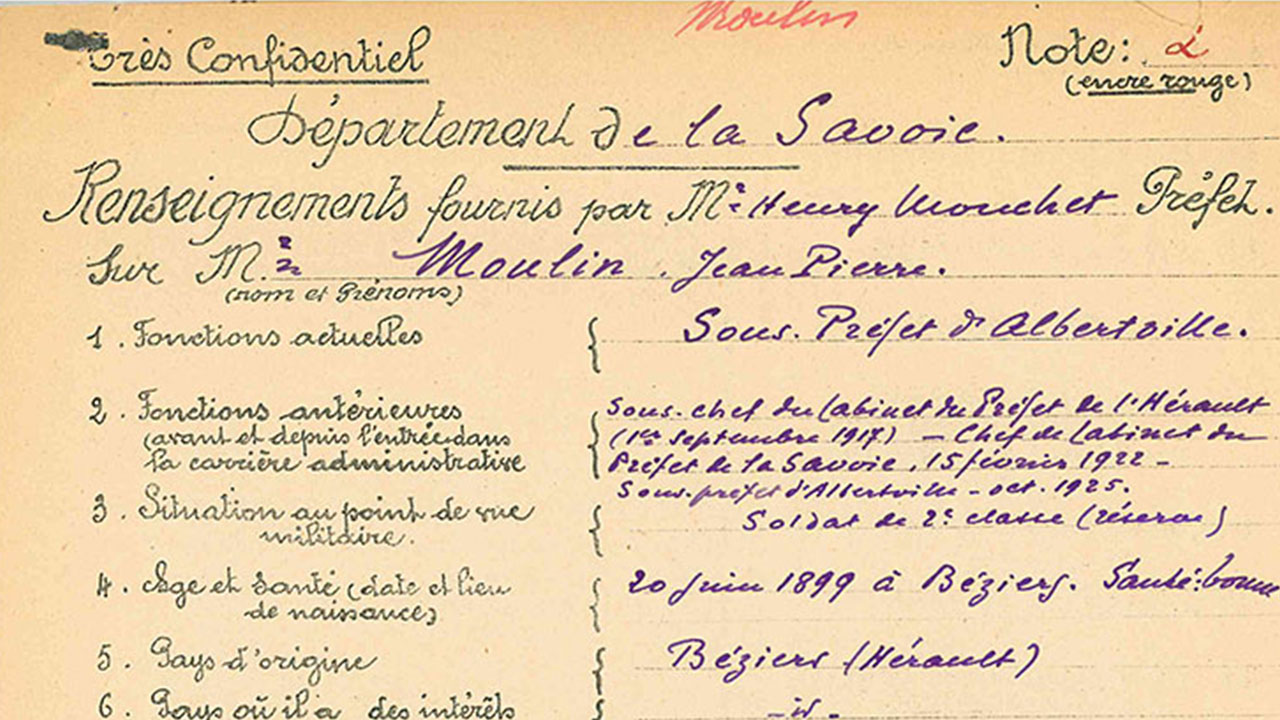 Moulin
Très Confidentiel
Note: 2
(encre rouge)
Département de la Savoie.
Renseignements fournis par Mr Henry Mouchet Préfet.
Sur Mr Moulin. Jean Pierre.
(nom et Prénoms)
1. Fonctions actuelles { Sous-Préfet d'Albertville.
2. Fonctions antérieures { Sous-chef du Cabinet du Préfet de l'Hérault
(avant et depuis l'entrée dans (1er Septembre 1917) – Chef de Cabinet du
la carrière administrative Préfet de la Savoie, 15 février 1922 –
Sous-préfet d'Albertville – oct. 1925.
3. Situation au point de vue { Soldat de 2e classe (réserve)
militaire.
4. Age et Santé (date et lieu { 20 Juin 1899 à Béziers. Santé: bonne
de naissance)
5. Pays d'origine { Béziers (Hérault)
6. Pays où il a des intérêts { – id –